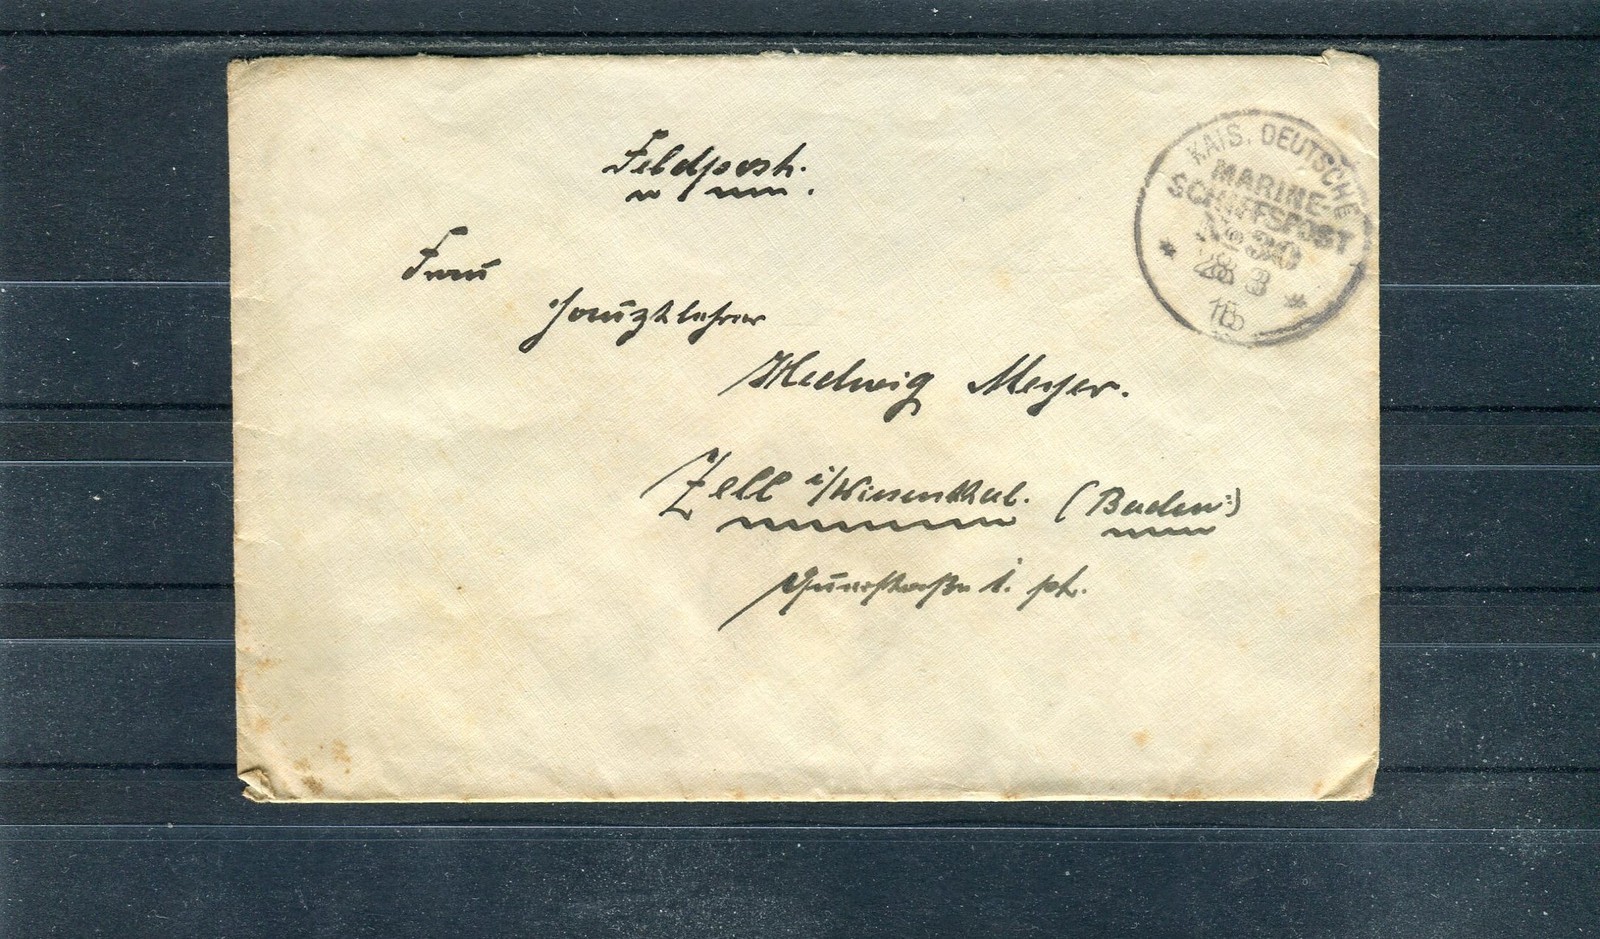 Feldpost.
Frau
Hauptlehrer
Hedwig Meyer.
Zell i/Wiesenthal. (Baden)
1. pt.
KAIS. DEUTSCHE
MARINE-
SCHIFFSPOST
No 30
28 3